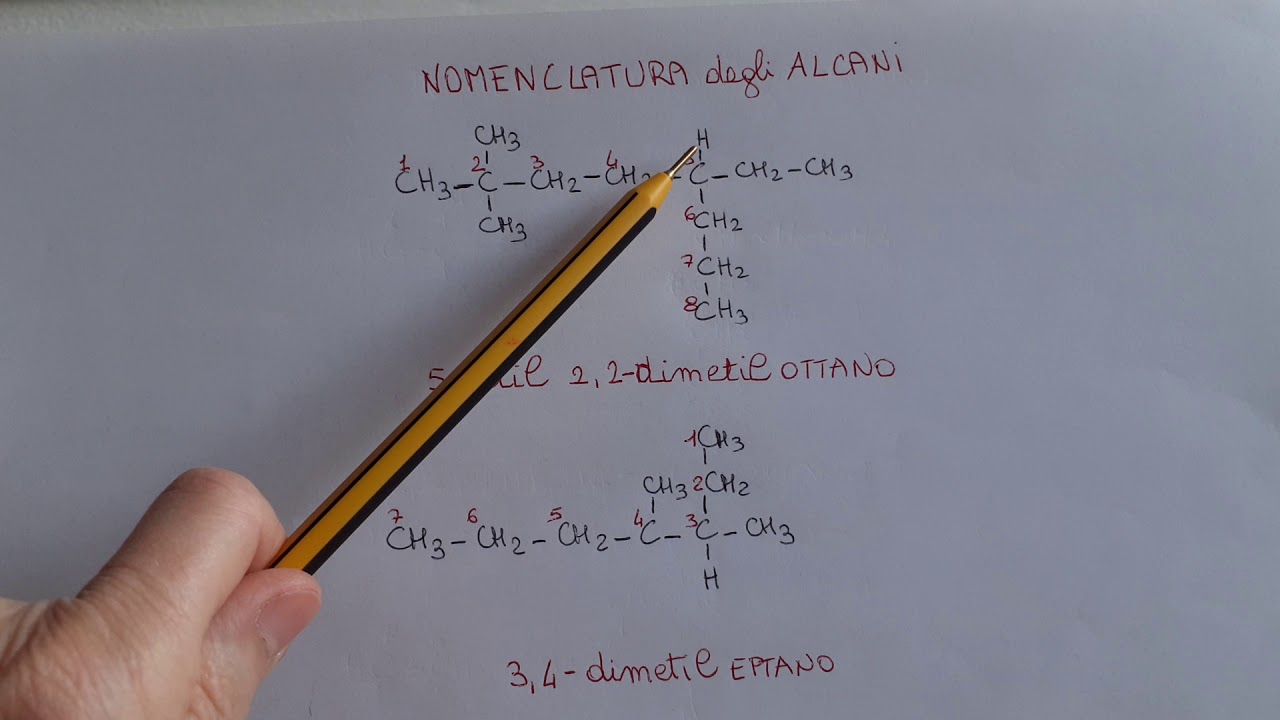 NOMENCLATURA degli ALCANI
CH3 H
1 2 3 4
CH3 - C - CH2 - CH2 - C - CH2 - CH3
CH3 6 CH2
7 CH2
8 CH3
5 2,2-dimetil OTTANO
1 CH3
CH3 2 CH2
7 6 5 4 3
CH3 - CH2 - CH2 - C - C - CH3
H
3,4-dimetil EPTANO